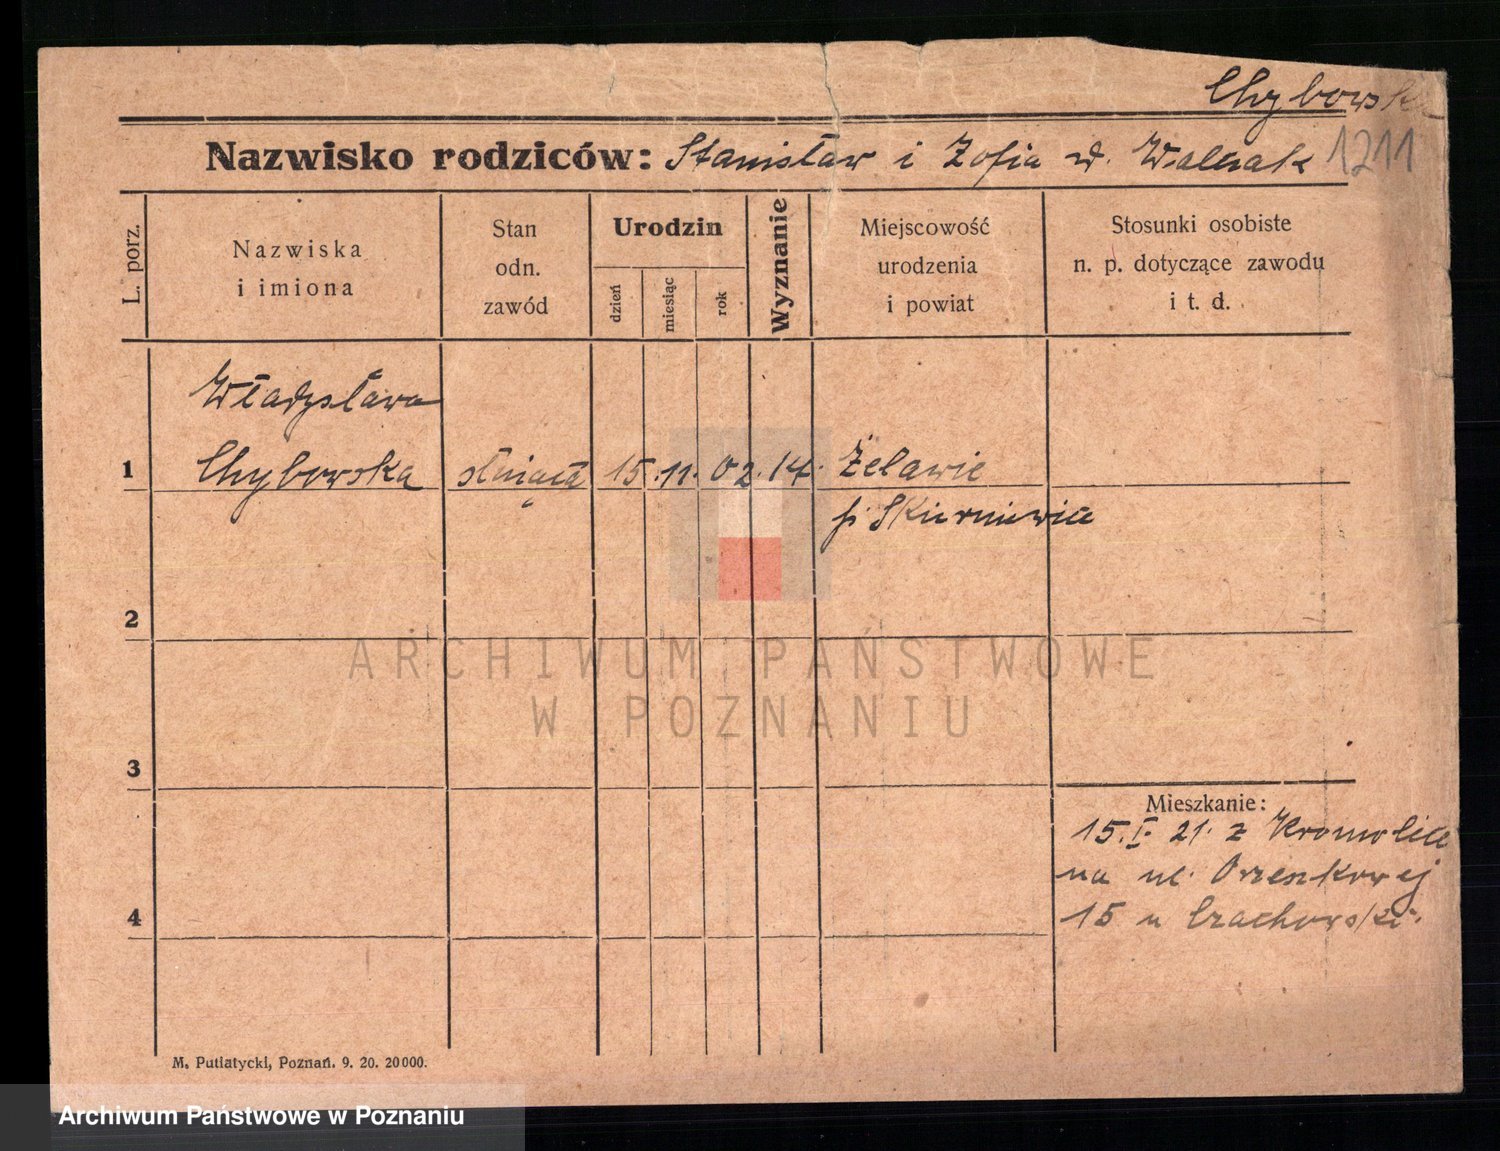 Chybowska
Nazwisko rodziców: Stanisław i Zofia d. Walczak 1211
L. porz.
Nazwiska
i imiona
Stan
odn.
zawód
Urodzin
dzień
miesiąc
rok
Wyznanie
Miejscowość
urodzenia
i powiat
Stosunki osobiste
n. p. dotyczące zawodu
i t. d.
Władysława
1 Chybowska służąca 15. 11. 02. Żelawie
p. Skierniewice
2
3
Mieszkanie:
15. I. 21. z Kromolice
na ul. Orzeszkowej
4 15 u Czachorski
M. Putiatycki, Poznań. 9. 20. 20000.
ARCHIWUM PAŃSTWOWE
W POZNANIU
Archiwum Państwowe w Poznaniu